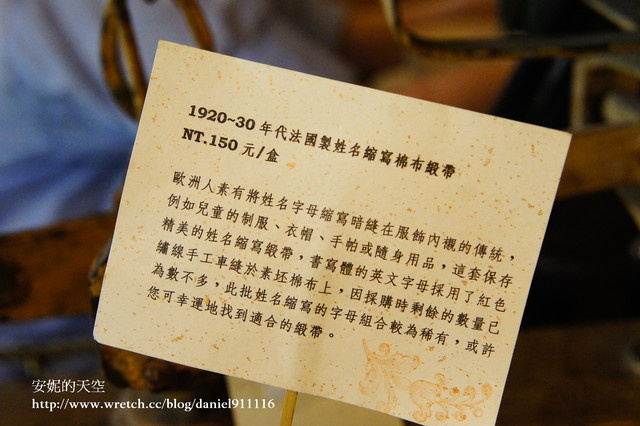 1920~30年代法國製姓名縮寫棉布緞帶
NT.150元/盒
歐洲人素有將姓名字母縮寫暗縫在服飾內襯的傳統，
例如兒童的制服、衣帽、手帕或隨身用品，這套保存
精美的姓名縮寫緞帶，書寫體的英文字母採用了紅色
繡線手工車縫於素坯棉布上，因採購時剩餘的數量已
為數不多，此批姓名縮寫的字母組合較為稀有，或許
您可幸運地找到適合的緞帶。
安妮的天空
http://www.wretch.cc/blog/daniel911116